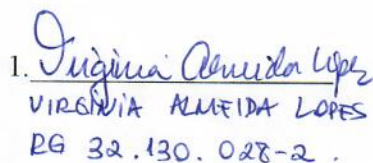 1. Virginia Almeida Lopes
VIRGÍNIA ALMEIDA LOPES
RG 32.130.028-2.